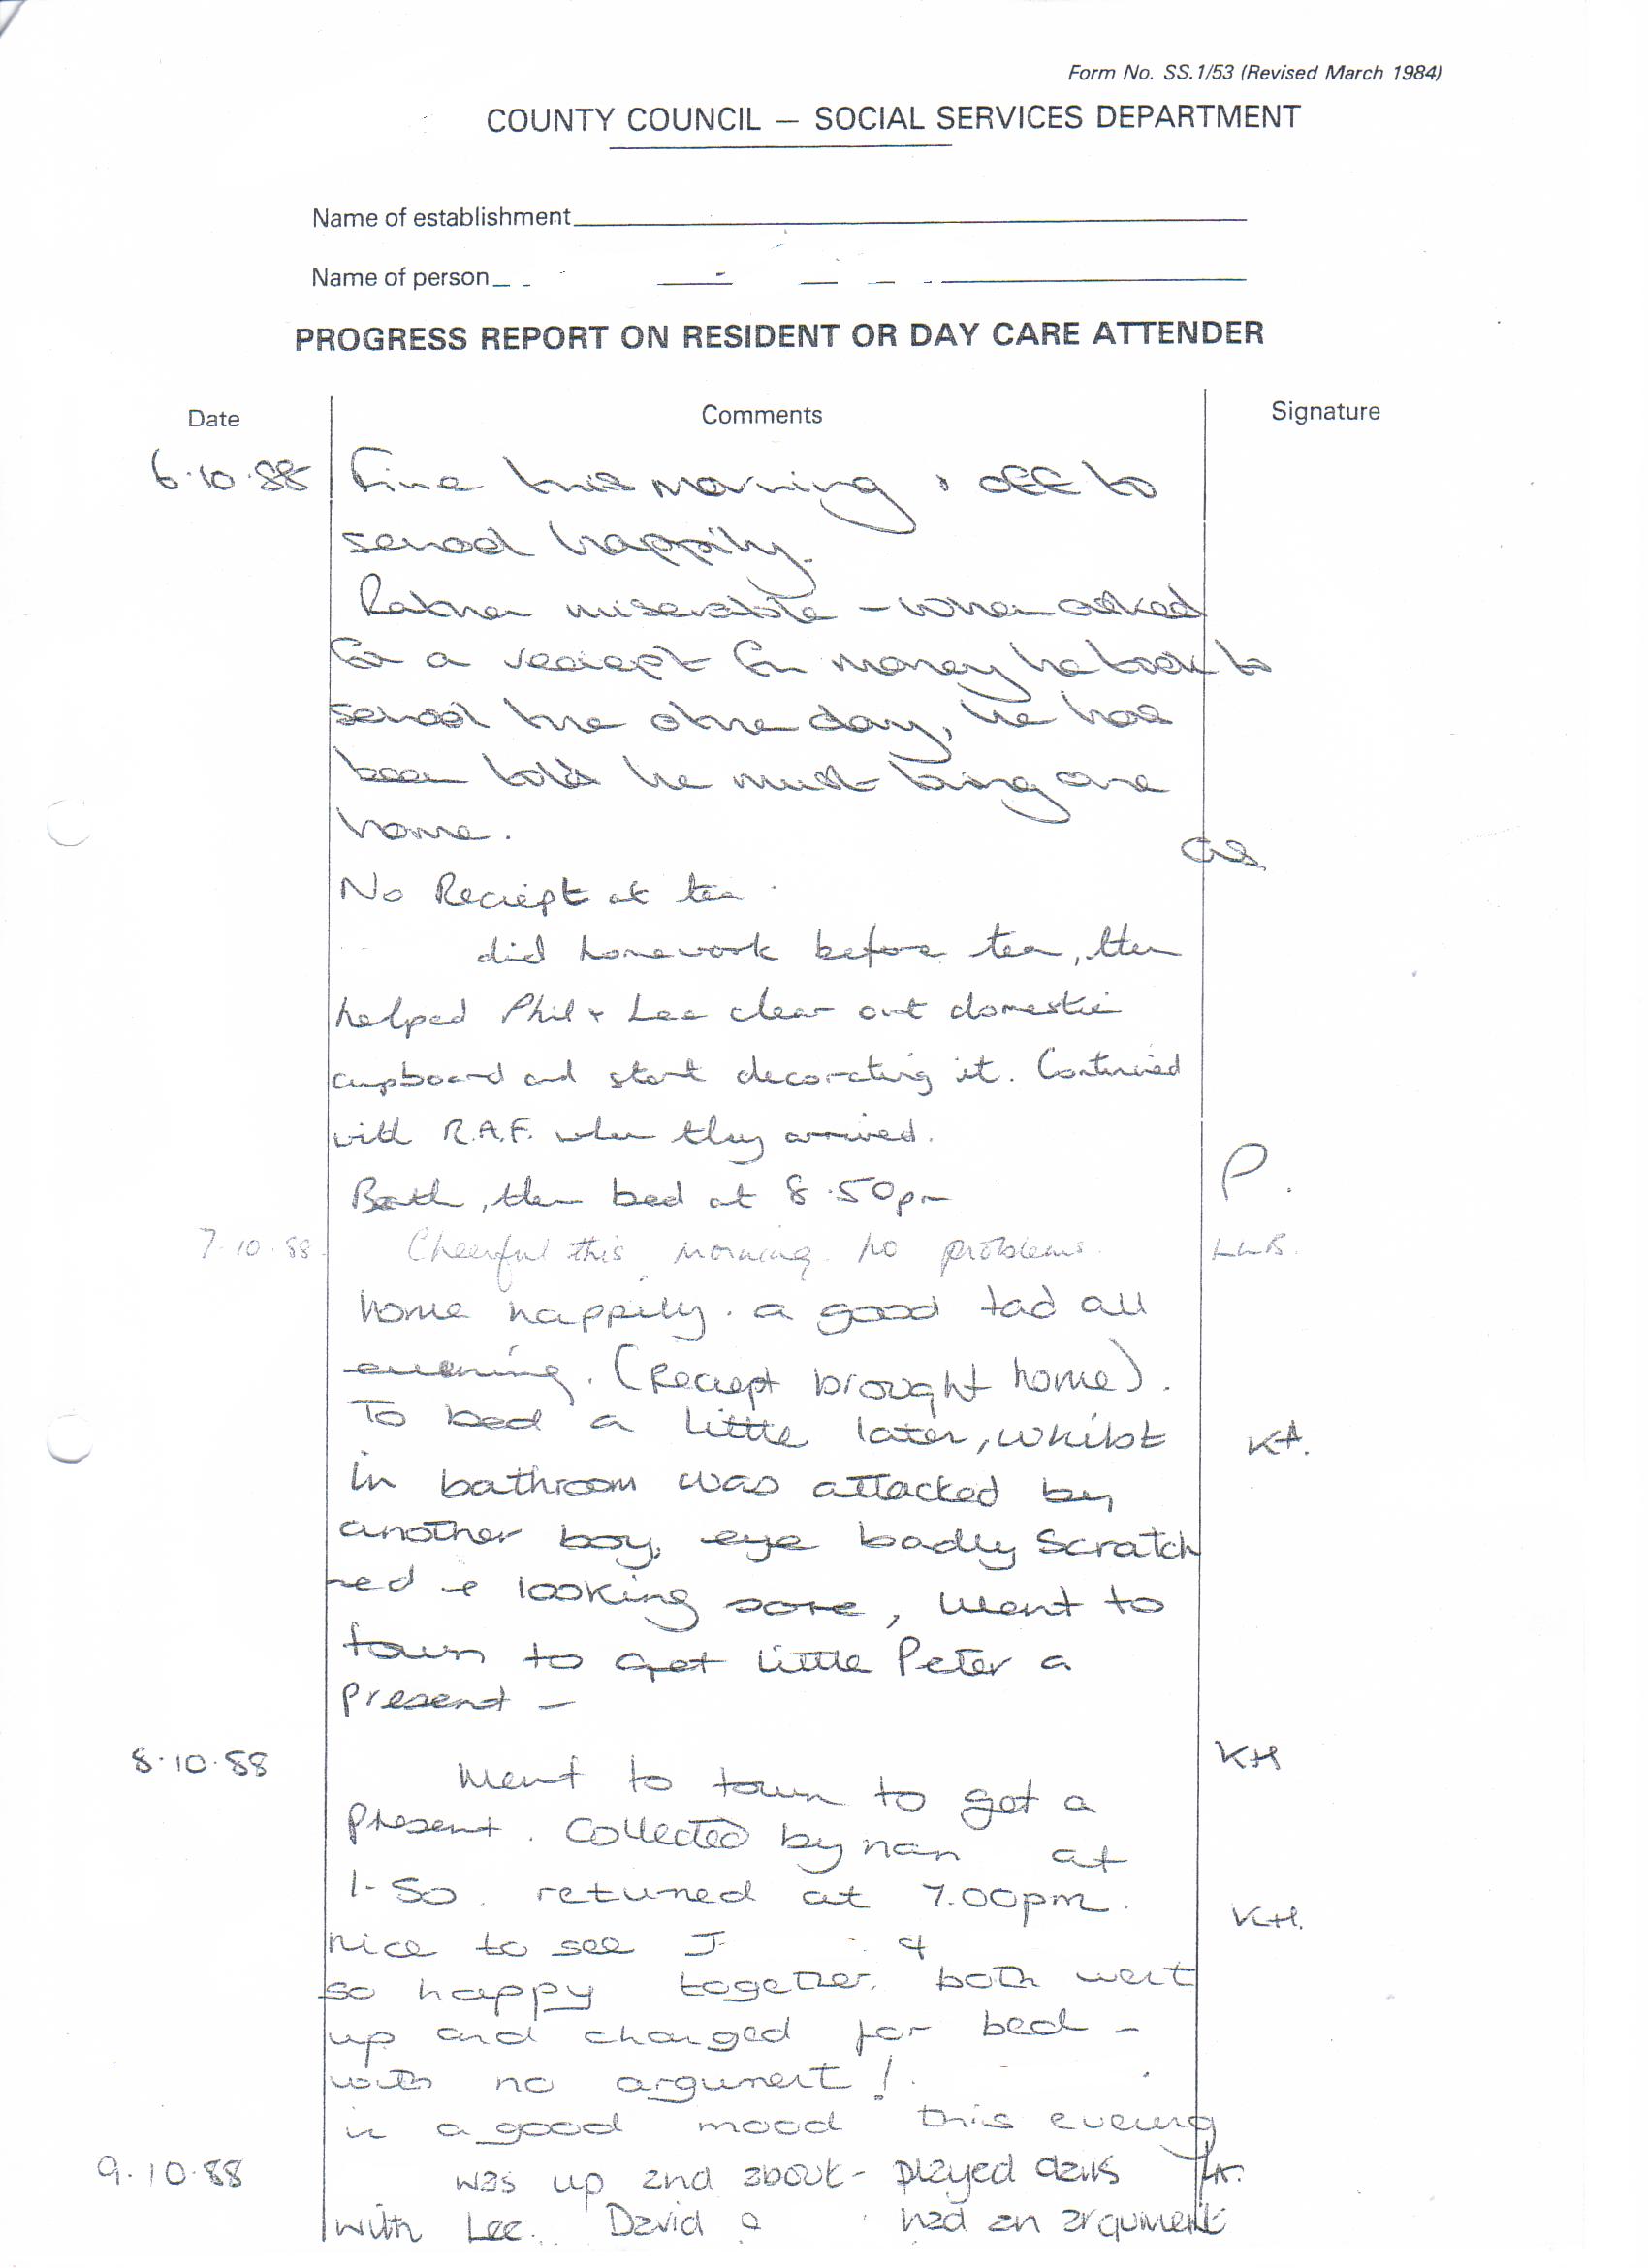 Form No. SS.1/53 (Revised March 1984)
COUNTY COUNCIL — SOCIAL SERVICES DEPARTMENT
Name of establishment
Name of person
PROGRESS REPORT ON RESIDENT OR DAY CARE ATTENDER
Date Comments Signature
6.10.88 Fine this morning & off to
school happily.
Rather miserable – when asked
for a reciept for money he took to
school the other day, he has
been told he must bring one
home.
GB
No Reciept at tea
did homework before tea, then
helped Phil & Lee clear out domestic
cupboard and start decorating it. Continued
with R.A.F. when they arrived.
Bath, then bed at 8.50pm P.
7.10.88 Cheerful this morning. no problems.
home happily. a good lad all
evening. (Reciept brought home).
To bed a little later, whilst KH.
in bathroom was attacked by
another boy, eye badly Scratch
hed & looking sore, went to
town to get little Peter a
present –
8.10.88 Went to town to get a KH
present. Collected by nan at
1-50. retuned at 7.00pm. KH.
nice to see J &
so happy together. both went
up and changed for bed –
with no argument!
in a good mood this evening
9.10.88 was up and about – played darts
with Lee. David & had an argument